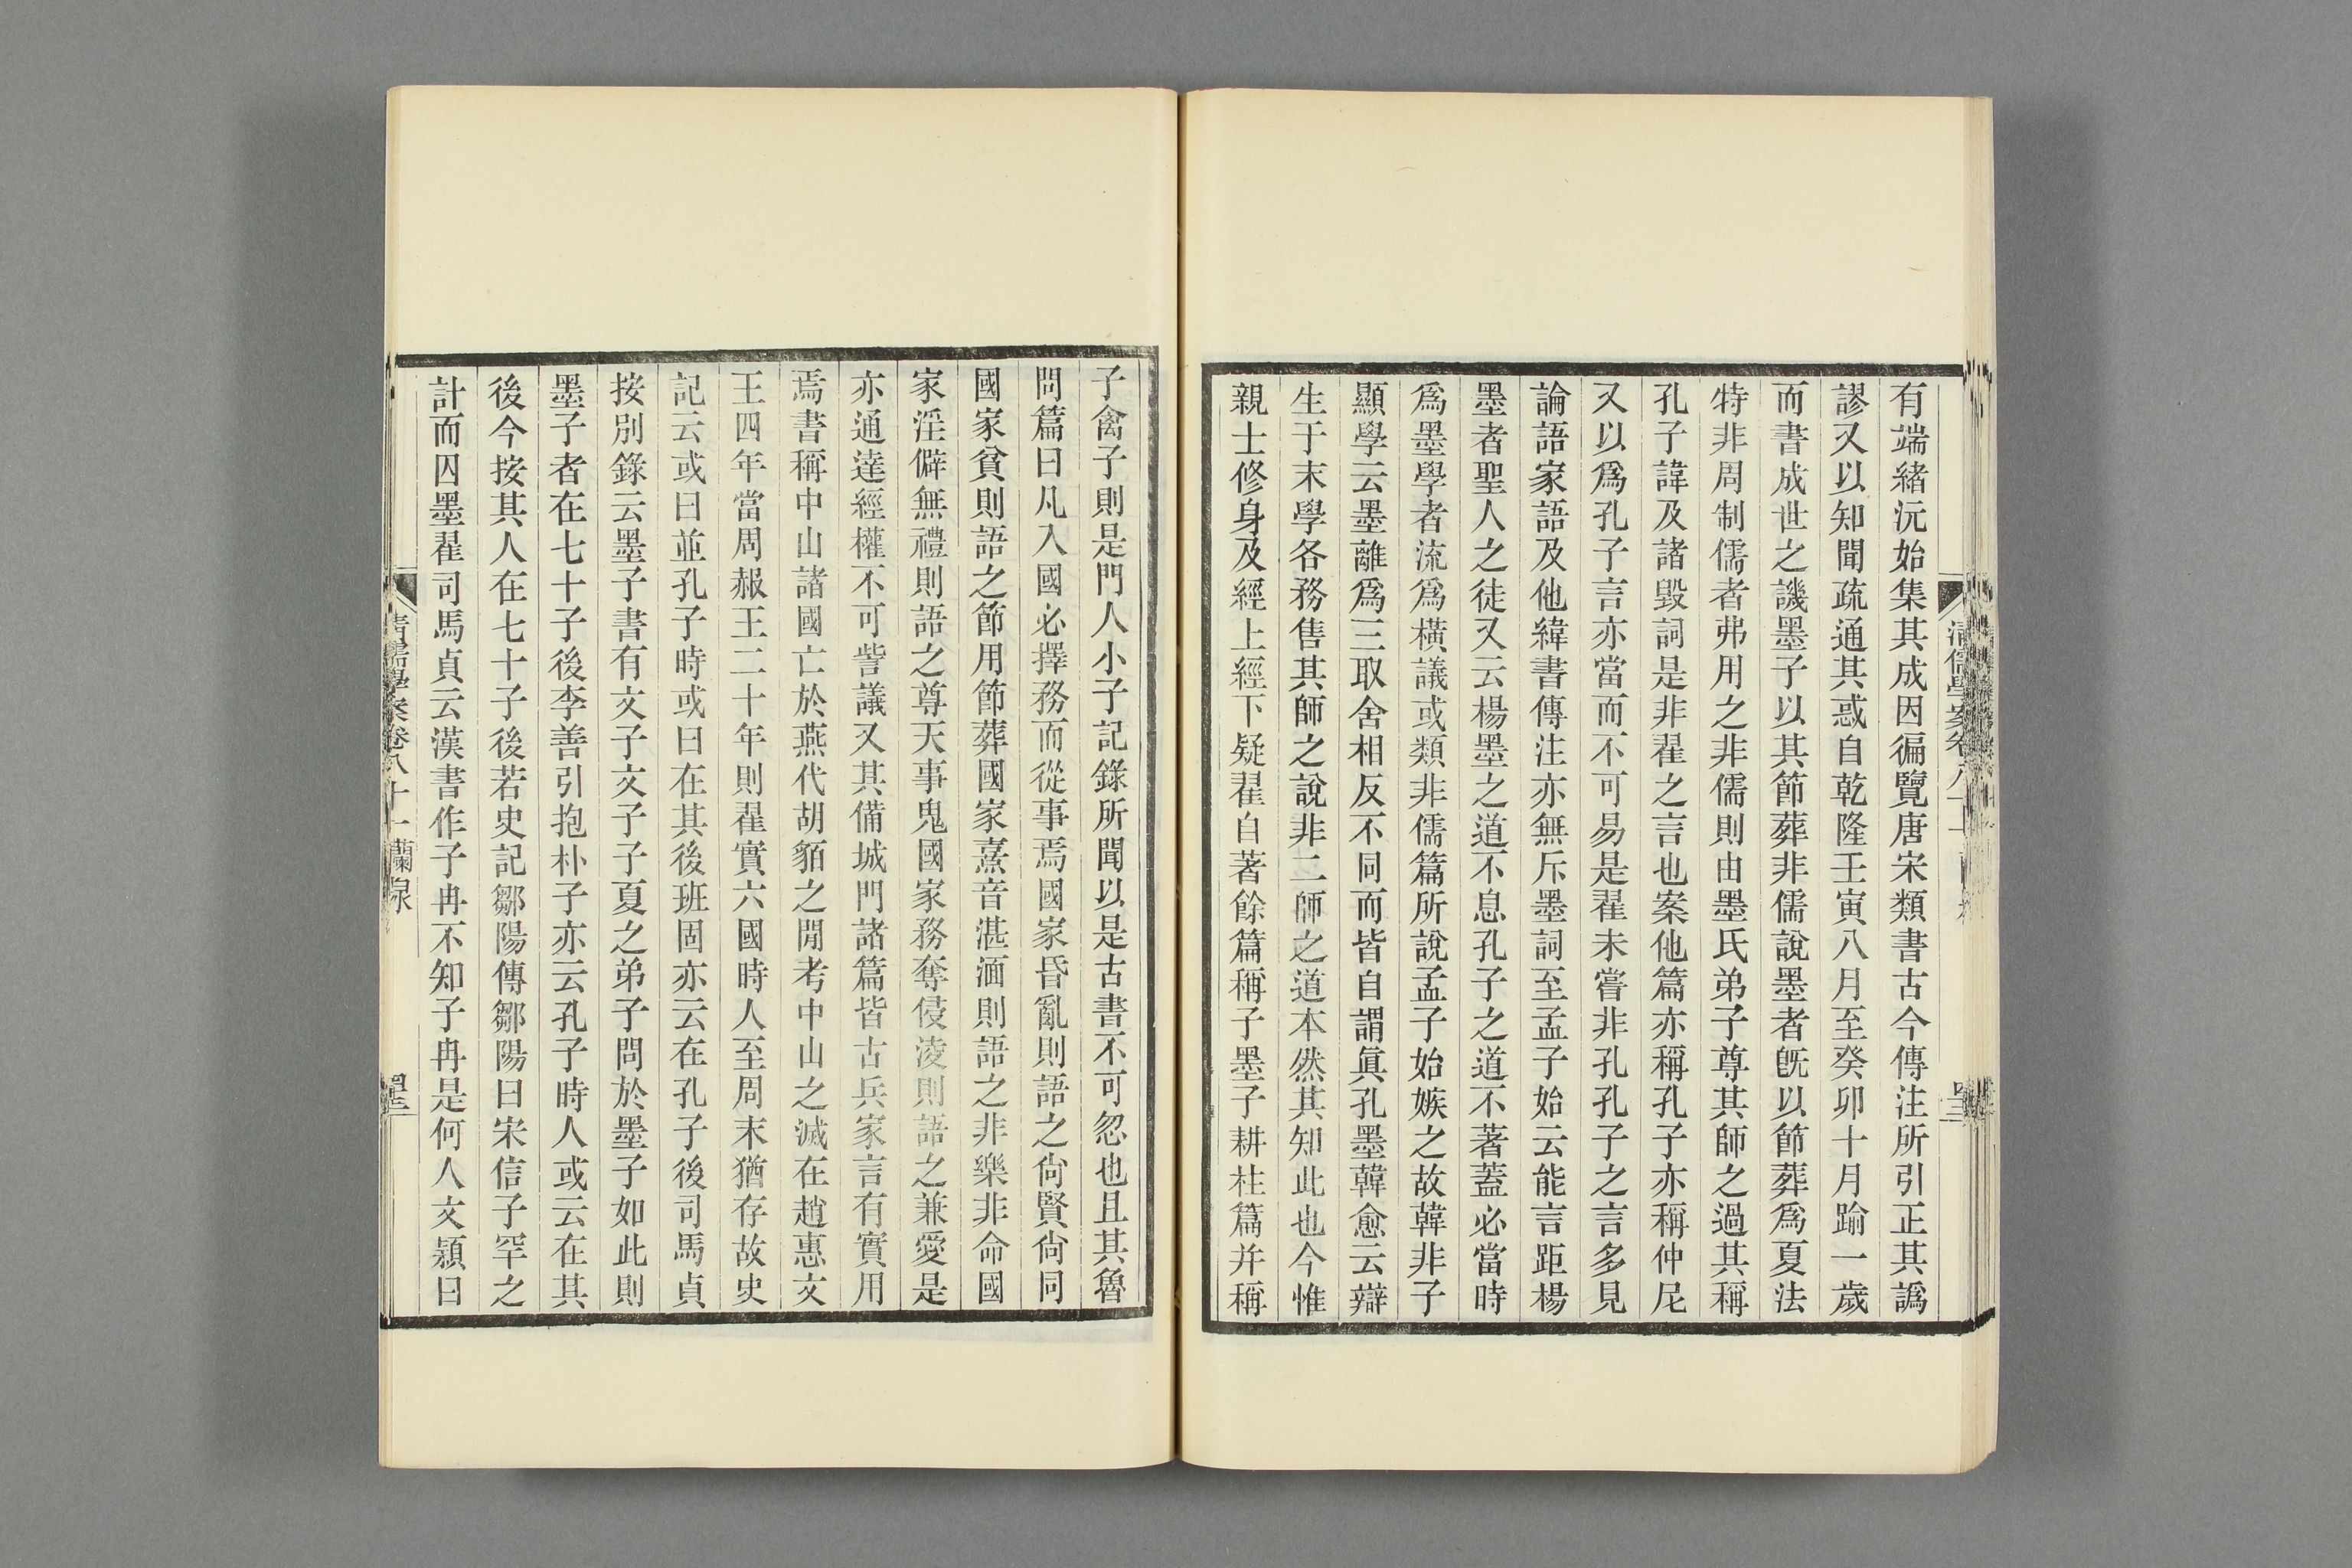 有端緒沅始集其成因徧覽唐宋類書古今傳注所引正其譌
謬又以知聞疏通其惑自乾隆壬寅八月至癸卯十月踰一歲
而書成世之譏墨子以其節葬非儒說墨者旣以節葬爲夏法
特非周制儒者弗用之非儒則由墨氏弟子尊其師之過其稱
孔子諱及諸毀詞是非翟之言也案他篇亦稱孔子亦稱仲尼
又以爲孔子言亦當而不可易是翟未嘗非孔孔子之言多見
論語家語及他緯書傳注亦無斥墨詞至孟子始云能言距楊
墨者聖人之徒又云楊墨之道不息孔子之道不著蓋必當時
爲墨學者流爲橫議或類非儒篇所說孟子始嫉之故韓非子
顯學云墨離爲三取舍相反不同而皆自謂眞孔墨韓愈云辯
生于末學各務售其師之說非二師之道本然其知此也今惟
親士修身及經上經下疑翟自著餘篇稱子墨子耕柱篇并稱
子禽子則是門人小子記錄所聞以是古書不可忽也且其魯
問篇曰凡入國必擇務而從事焉國家昏亂則語之尙賢尙同
國家貧則語之節用節葬國家憙音湛湎則語之非樂非命國
家淫僻無禮則語之尊天事鬼國家務奪侵淩則語之兼愛是
亦通達經權不可訾議又其備城門諸篇皆古兵家言有實用
焉書稱中山諸國亡於燕代胡貊之閒考中山之滅在趙惠文
王四年當周赧王二十年則翟實六國時人至周末猶存故史
記云或曰並孔子時或曰在其後班固亦云在孔子後司馬貞
按別錄云墨子書有文子文子子夏之弟子問於墨子如此則
墨子者在七十子後李善引抱朴子亦云孔子時人或云在其
後今按其人在七十子後若史記鄒陽傳鄒陽曰宋信子罕之
計而囚墨翟司馬貞云漢書作子冉不知子冉是何人文潁曰
清儒學案卷八十一 蘭泉